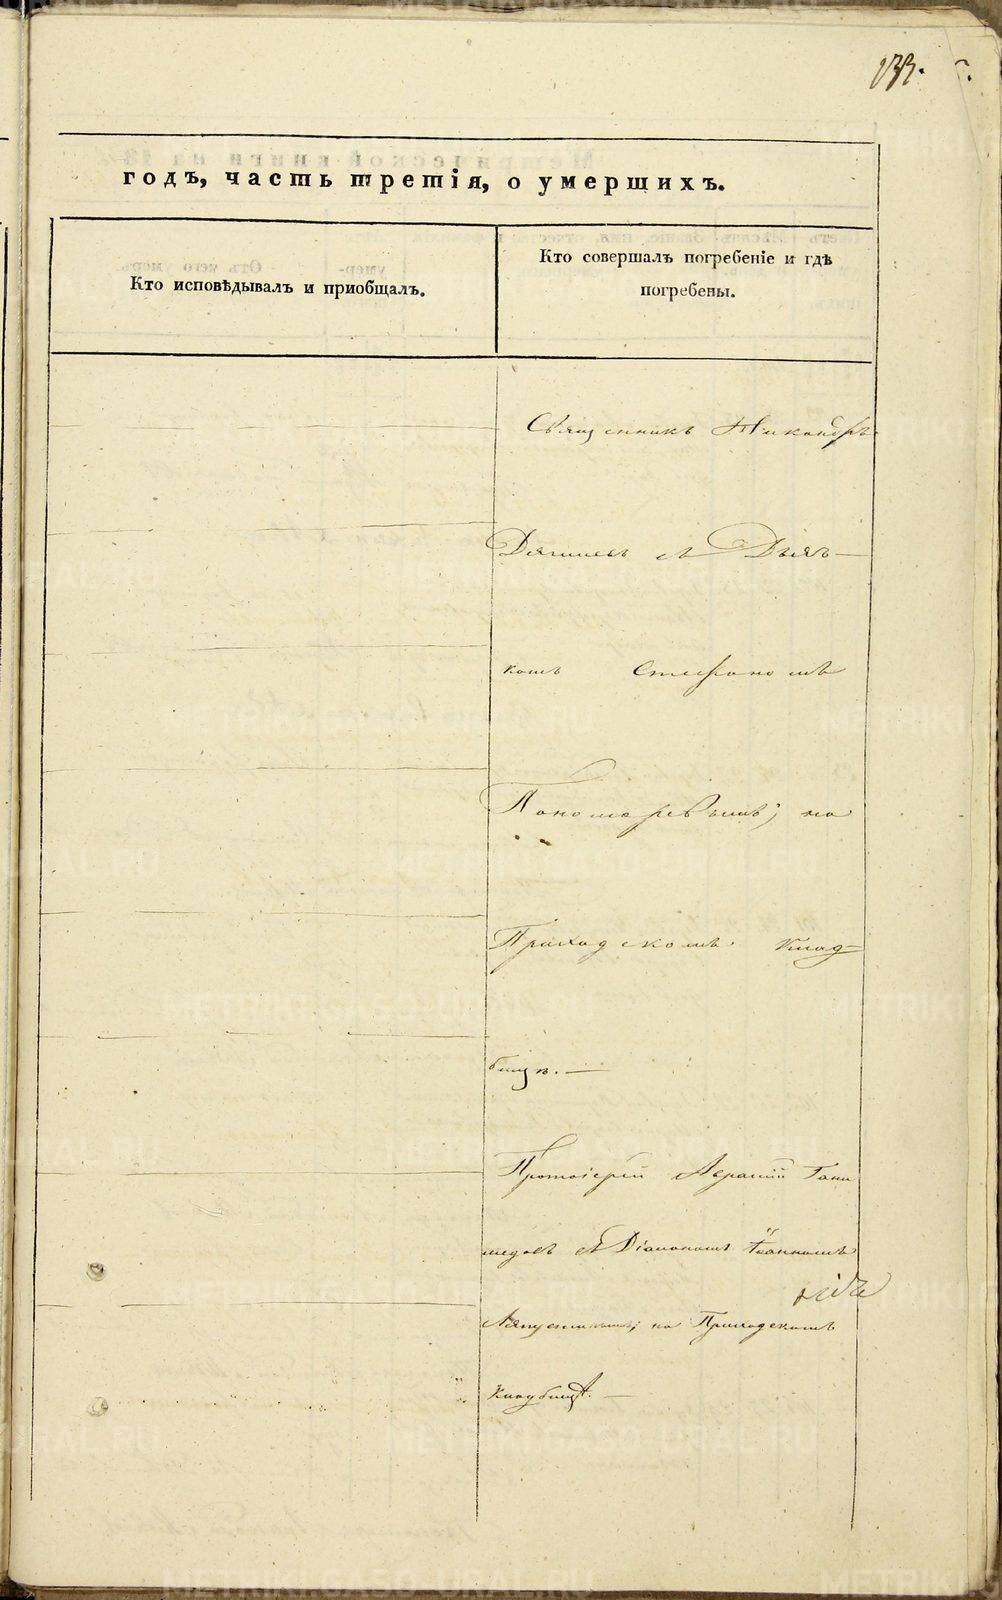 133.
годъ, часть третія, о умершихъ.
Кто исповѣдывалъ и приобщалъ.
Кто совершалъ погребеніе и гдѣ
погребены.
Священникъ Никандръ
Дьяч-
комъ Стефаномъ
Пономаревымъ; на
Приходскомъ Клад-
бищѣ. —
Протоіерей Гани
медовъ Діакономъ Іоанномъ
на Приходскомъ
Кладбищѣ. —
METRIKI.GASO-URAL.RU